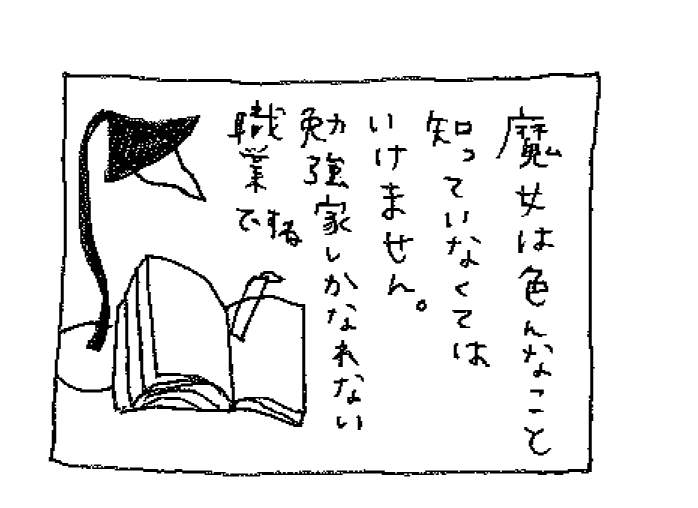 魔女は色んなこと
知っていなくては
いけません。
勉強家しかなれない
職業ですね